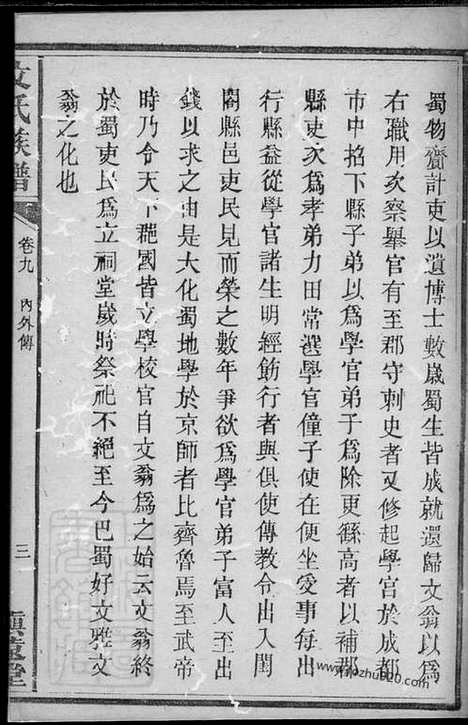 蜀物齎計吏以遺博士數歲蜀生皆成就還歸文翁以為
右職用次察舉官有至郡守刺史者又修起學官於成都
市中招下縣子弟以為學官弟子為除更繇高者以補郡
縣吏次為孝弟力田常選學官僮子使在便坐受事每出
行縣益從學官諸生明經飭行者與俱使傳教令出入閨
閣縣邑吏民見而榮之數年爭欲為學官弟子富人至出
錢以求之由是大化蜀地學於京師者比齊魯焉至武帝
時乃令天下郡國皆立學校官自文翁為之始云文翁終
於蜀吏民為立祠堂歲時祭祀不絕至今巴蜀好文雅文
翁之化也
文氏族譜
卷九
內外傳
三
www.mozhu920.com